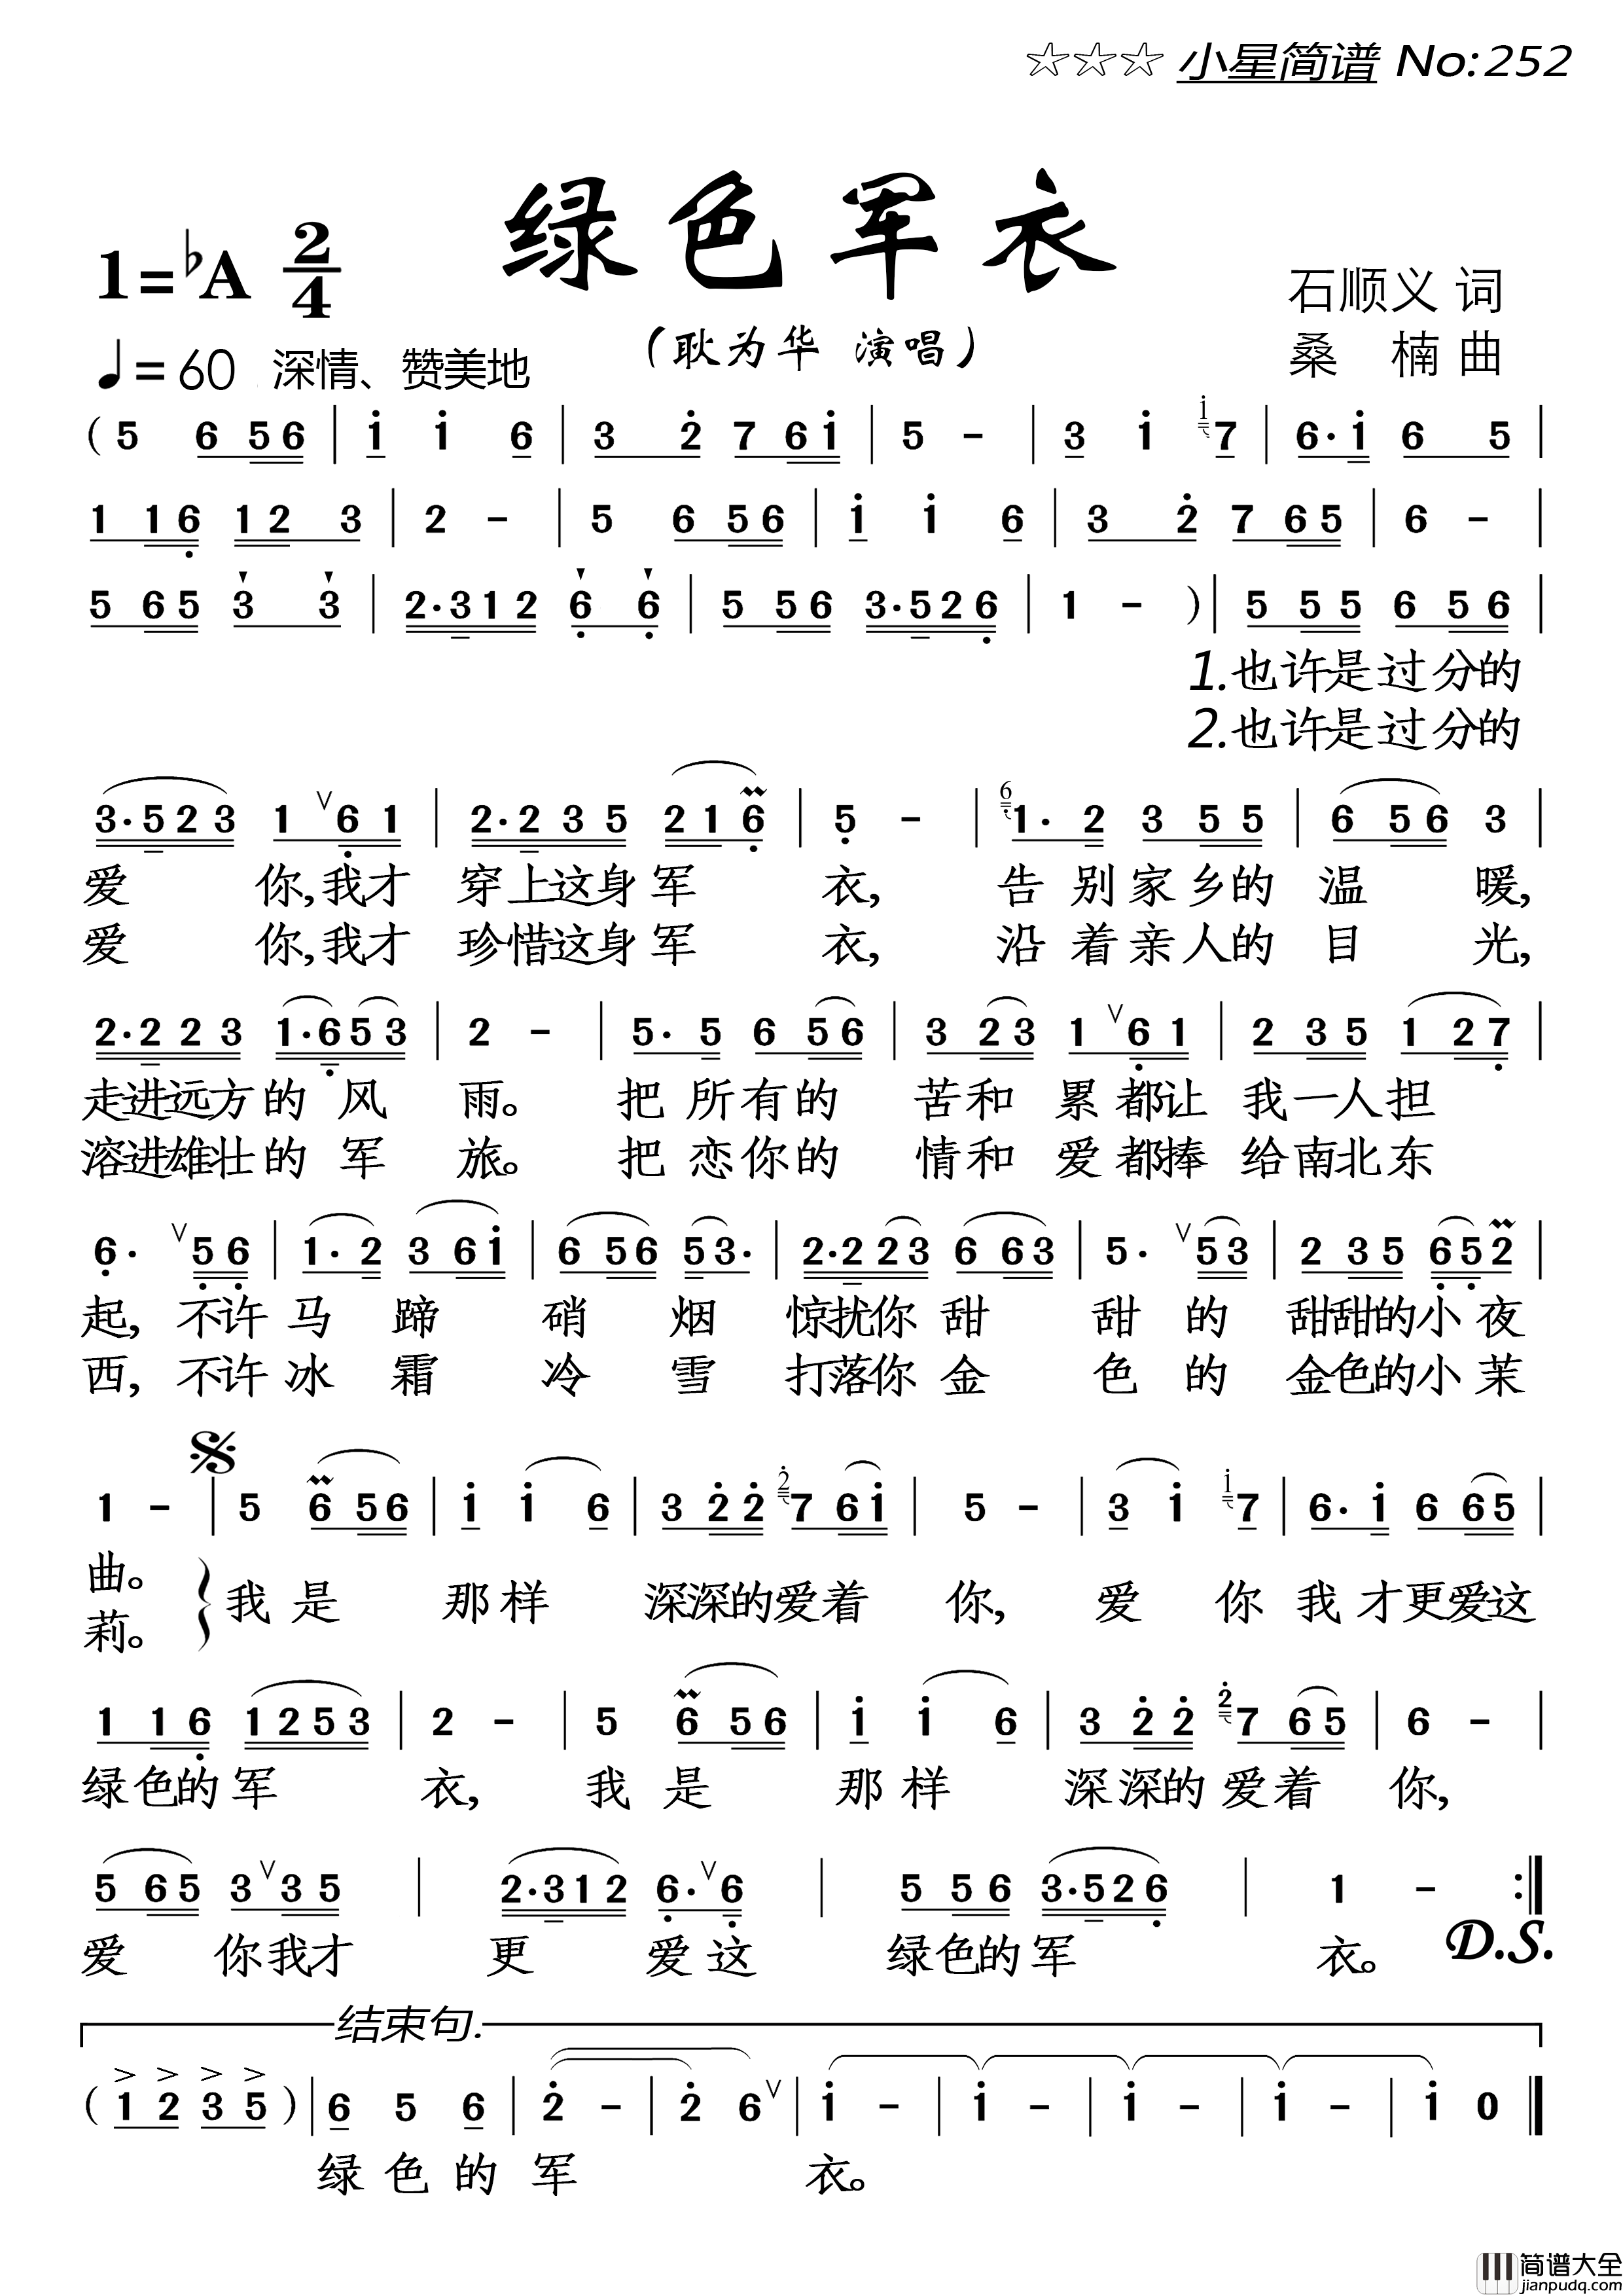 ☆☆☆ 小星简谱 No:252
绿色军衣
1=♭A 2/4
石顺义 词
(耿为华 演唱)
桑 楠 曲
♩=60 深情、赞美地
(5 6 56 | i i 6 | 3 2 7 6i | 5 - | 3 i i7 | 6·i 6 5 |
1 16 12 3 | 2 - | 5 6 56 | i i 6 | 3 2 7 65 | 6 - |
5 65 3 3 | 2·312 6 6 | 5 56 3·526 | 1 - ) | 5 55 6 56 |
1.也许是过分的
2.也许是过分的
3·523 1 ∨61 | 2·235 216 | 5 - | 6 1· 2 3 55 | 6 56 3 |
爱 你,我才 穿上这身军 衣, 告别家乡的温 暖,
爱 你,我才 珍惜这身军 衣, 沿着亲人的目 光,
2·223 1·653 | 2 - | 5· 5 6 56 | 3 23 1 ∨61 | 2 35 1 27 |
走进远方的 风 雨。 把所有的 苦和 累都让 我一人担
溶进雄壮的 军 旅。 把恋你的 情和 爱都捧 给南北东
6· ∨56 | 1· 2 3 6i | 6 56 53· | 2·223 6 63 | 5· ∨53 | 2 35 652 |
起, 不许马 蹄 硝 烟 惊扰你甜 甜 的 甜甜的小夜
西, 不许冰 霜 冷 雪 打落你金 色 的 金色的小茉
1 - | 5 6 56 | i i 6 | 3 22 27 6i | 5 - | 3 i i7 | 6· i 6 65 |
曲。
我是 那样 深深的爱着 你, 爱 你 我才更爱这
莉。
1 16 1253 | 2 - | 5 6 56 | i i 6 | 3 22 27 65 | 6 - |
绿色的军 衣, 我是 那样 深深的爱着 你,
5 65 3∨35 | 2·312 6·∨6 | 5 56 3·526 | 1 - :‖
爱 你我才 更 爱这 绿色的军 衣。 D.S.
结束句.
(12 35) | 6 5 6 | 2 - | 2 6∨ | i - | i - | i - | i - | i 0 ‖
绿色的军 衣。
简谱大全
jianpudq.com